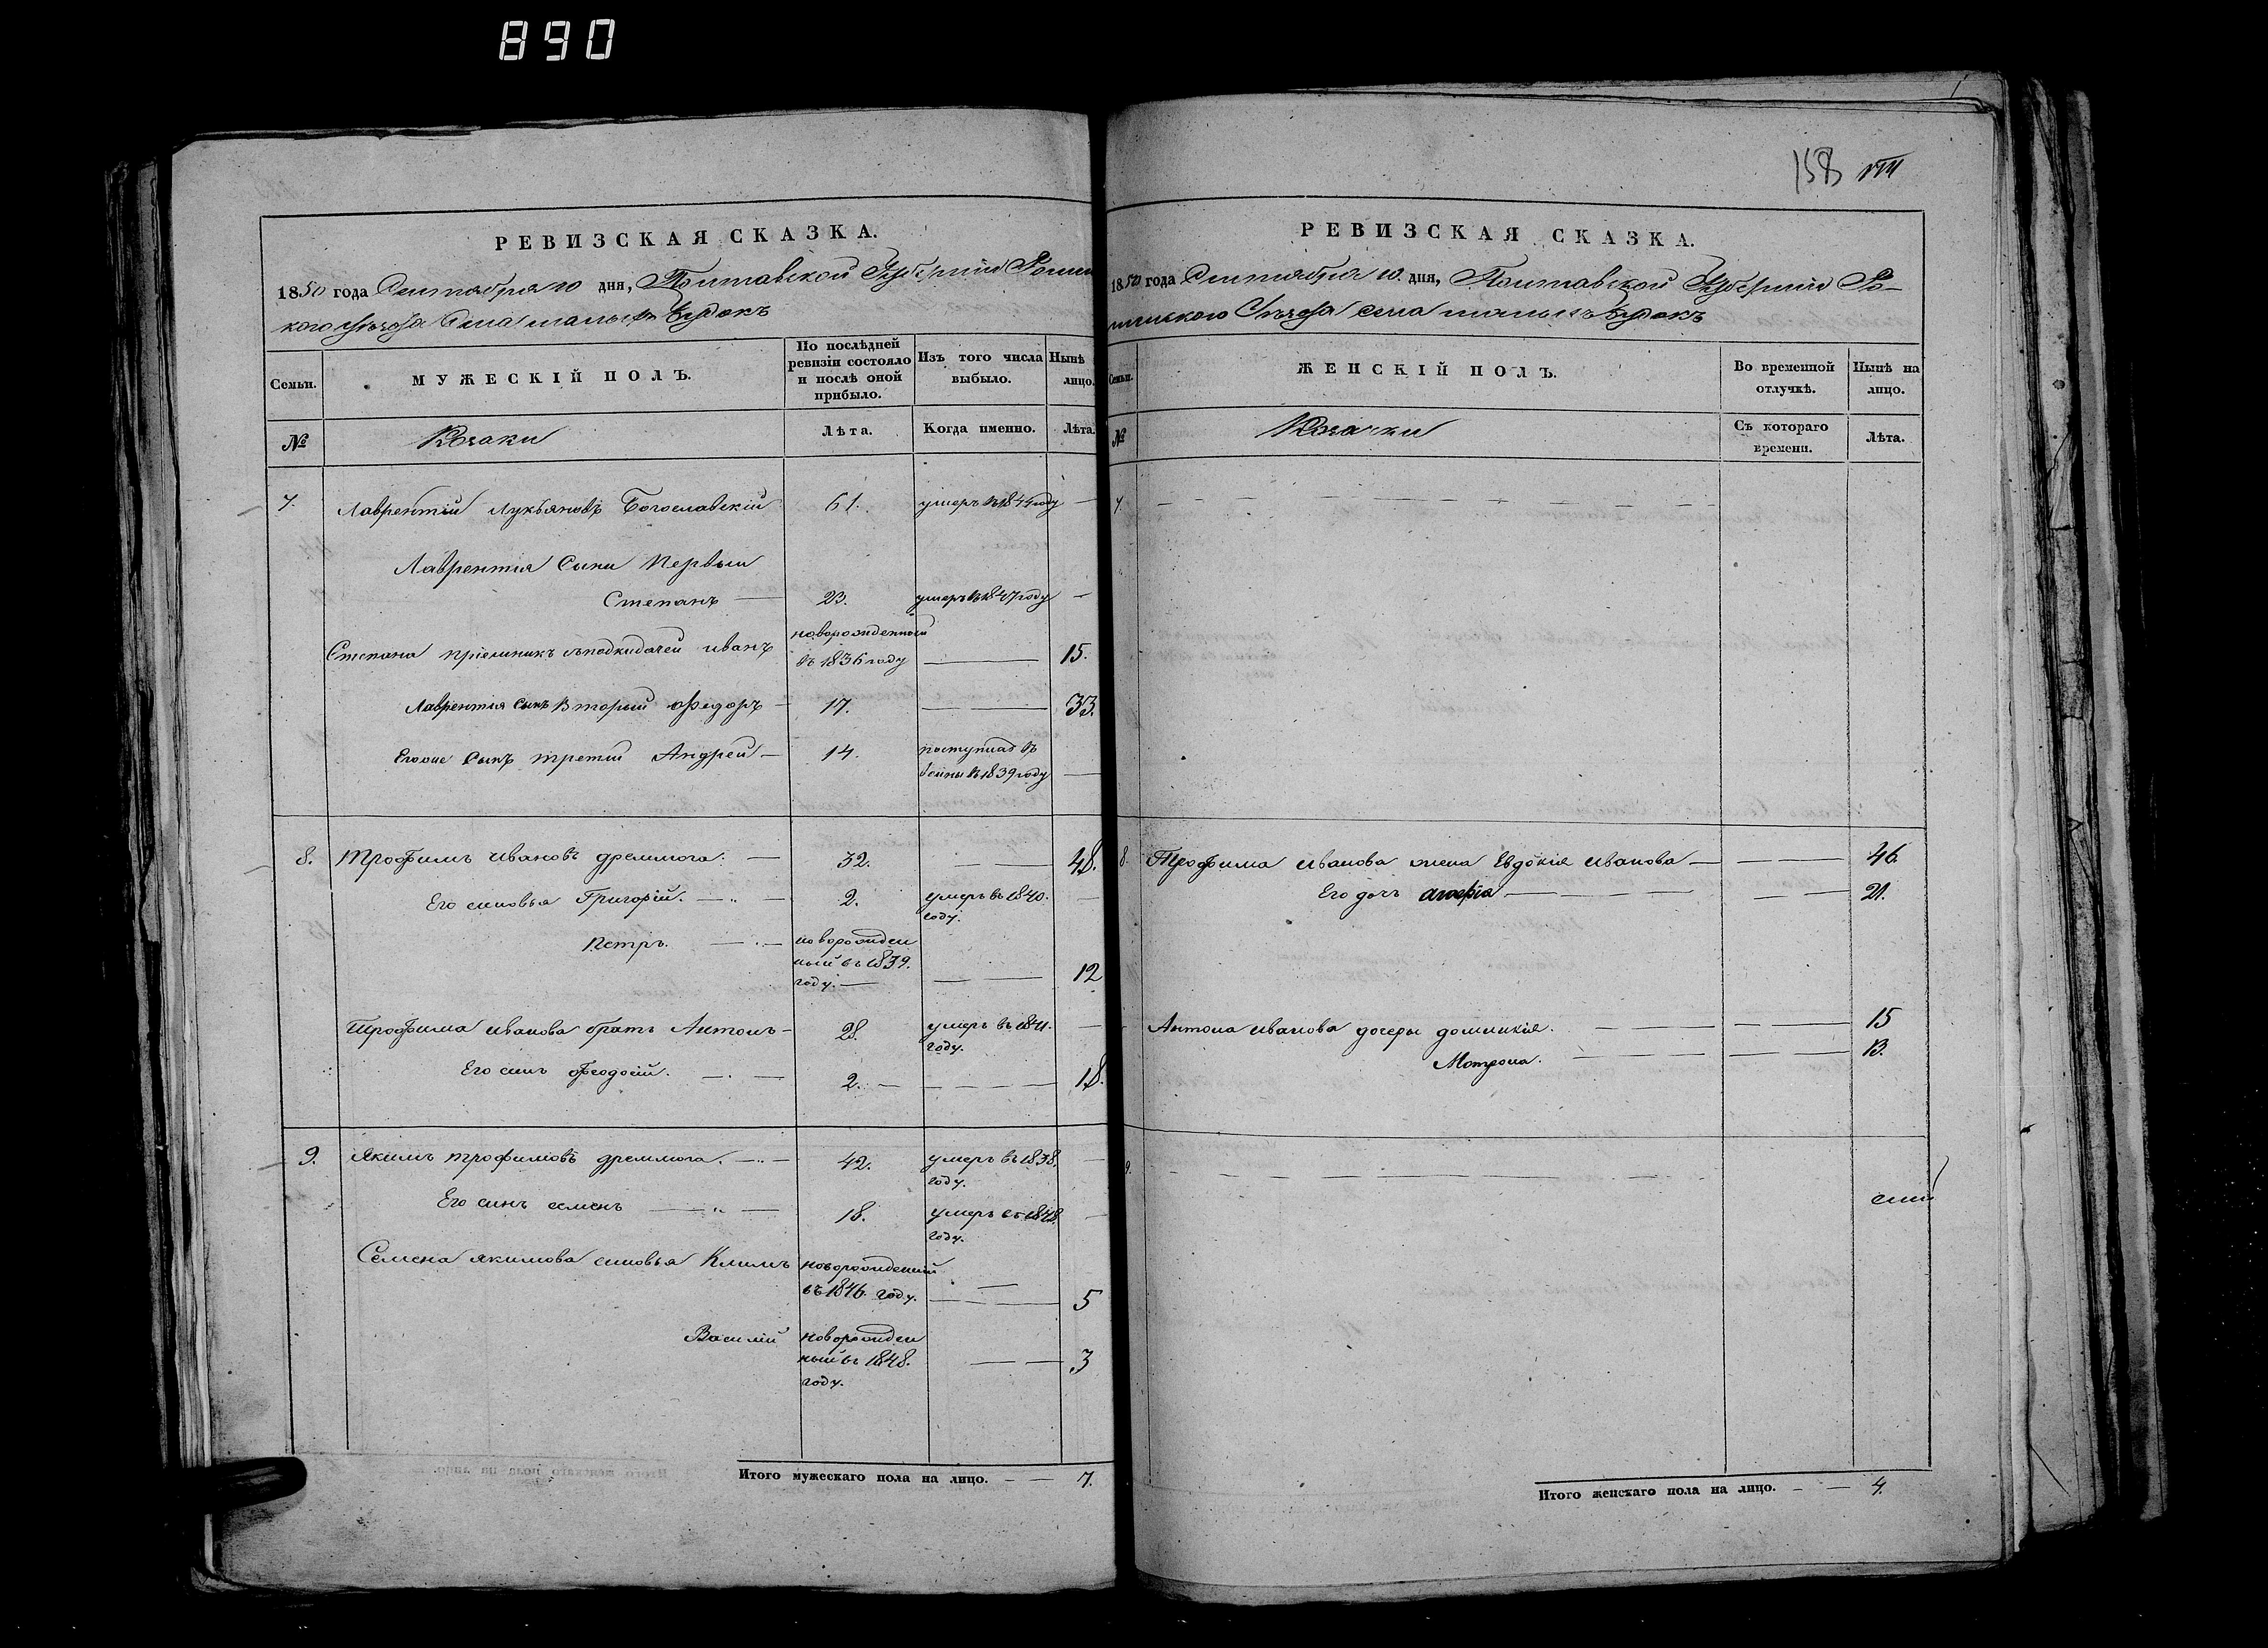 890
158
РЕВИЗСКАЯ СКАЗКА.
1850 года Сентября 10 дня, Полтавской Губерніи Ромен
кого уезда Села малыхъ Будокъ
Семьи.
МУЖЕСКІЙ ПОЛЪ.
По послѣдней ревизіи состояло и послѣ оной прибыло.
Изъ того числа выбыло.
Нынѣ лицо.
№
Козаки
Лѣта.
Когда именно.
Лѣта.
7. Лаврентій Лукьяновъ Богославскій 61. умеръ въ 1844 году —
Лаврентія сыни Первый
Степанъ — 23. умеръ въ 1847 году —
новорожденный
Степана пріемышъ съ подкидачей иванъ въ 1836 году — 15.
Лаврентія сынъ Вторый Федоръ — 17. — 33.
Егоже сынъ третій Андрей — 14. поступилъ въ
въ 1839 году —
8. Трофимъ ивановъ дремлюга. — 32. — — 48.
Его синовья Григорій. — 2. умеръ въ 1840. —
году.
Петръ. — новорожден
ный въ 1839.
году. — — — 12
Трофима иванова братъ Антонъ — 28. умеръ въ 1841. —
году.
Его синъ Феодосій. — 2. — — — — 18.
9. Якимъ трофимовъ дремлюга. — 42. умеръ въ 1838. —
году.
Его синъ семенъ — 18. умеръ въ 1848. —
году.
Семена якимова синовья Климъ новорожденій
въ 1846. году. — 5
Василій новорожден
ный въ 1848. — 3
году.
Итого мужескаго пола на лицо. — — 7.
РЕВИЗСКАЯ СКАЗКА.
1850 года Сентября 10. дня, Полтавской Губерніи Ро-
менского Уезда села малыхъ Будокъ
Семьи.
ЖЕНСКІЙ ПОЛЪ.
Во временной отлучкѣ.
Нынѣ на лицо.
№
Козачки
Съ котораго времени.
Лѣта.
7. — — — — — — — —
8. Трофима иванова жена Евдокія иванова — — — 46.
Его дочъ — — — — — 21.
Антона иванова дочеры домникія. — — — — 15
Мотрона. — — — — 13.
9. — — — — — — —
Итого женскаго пола на лицо. — — 4.